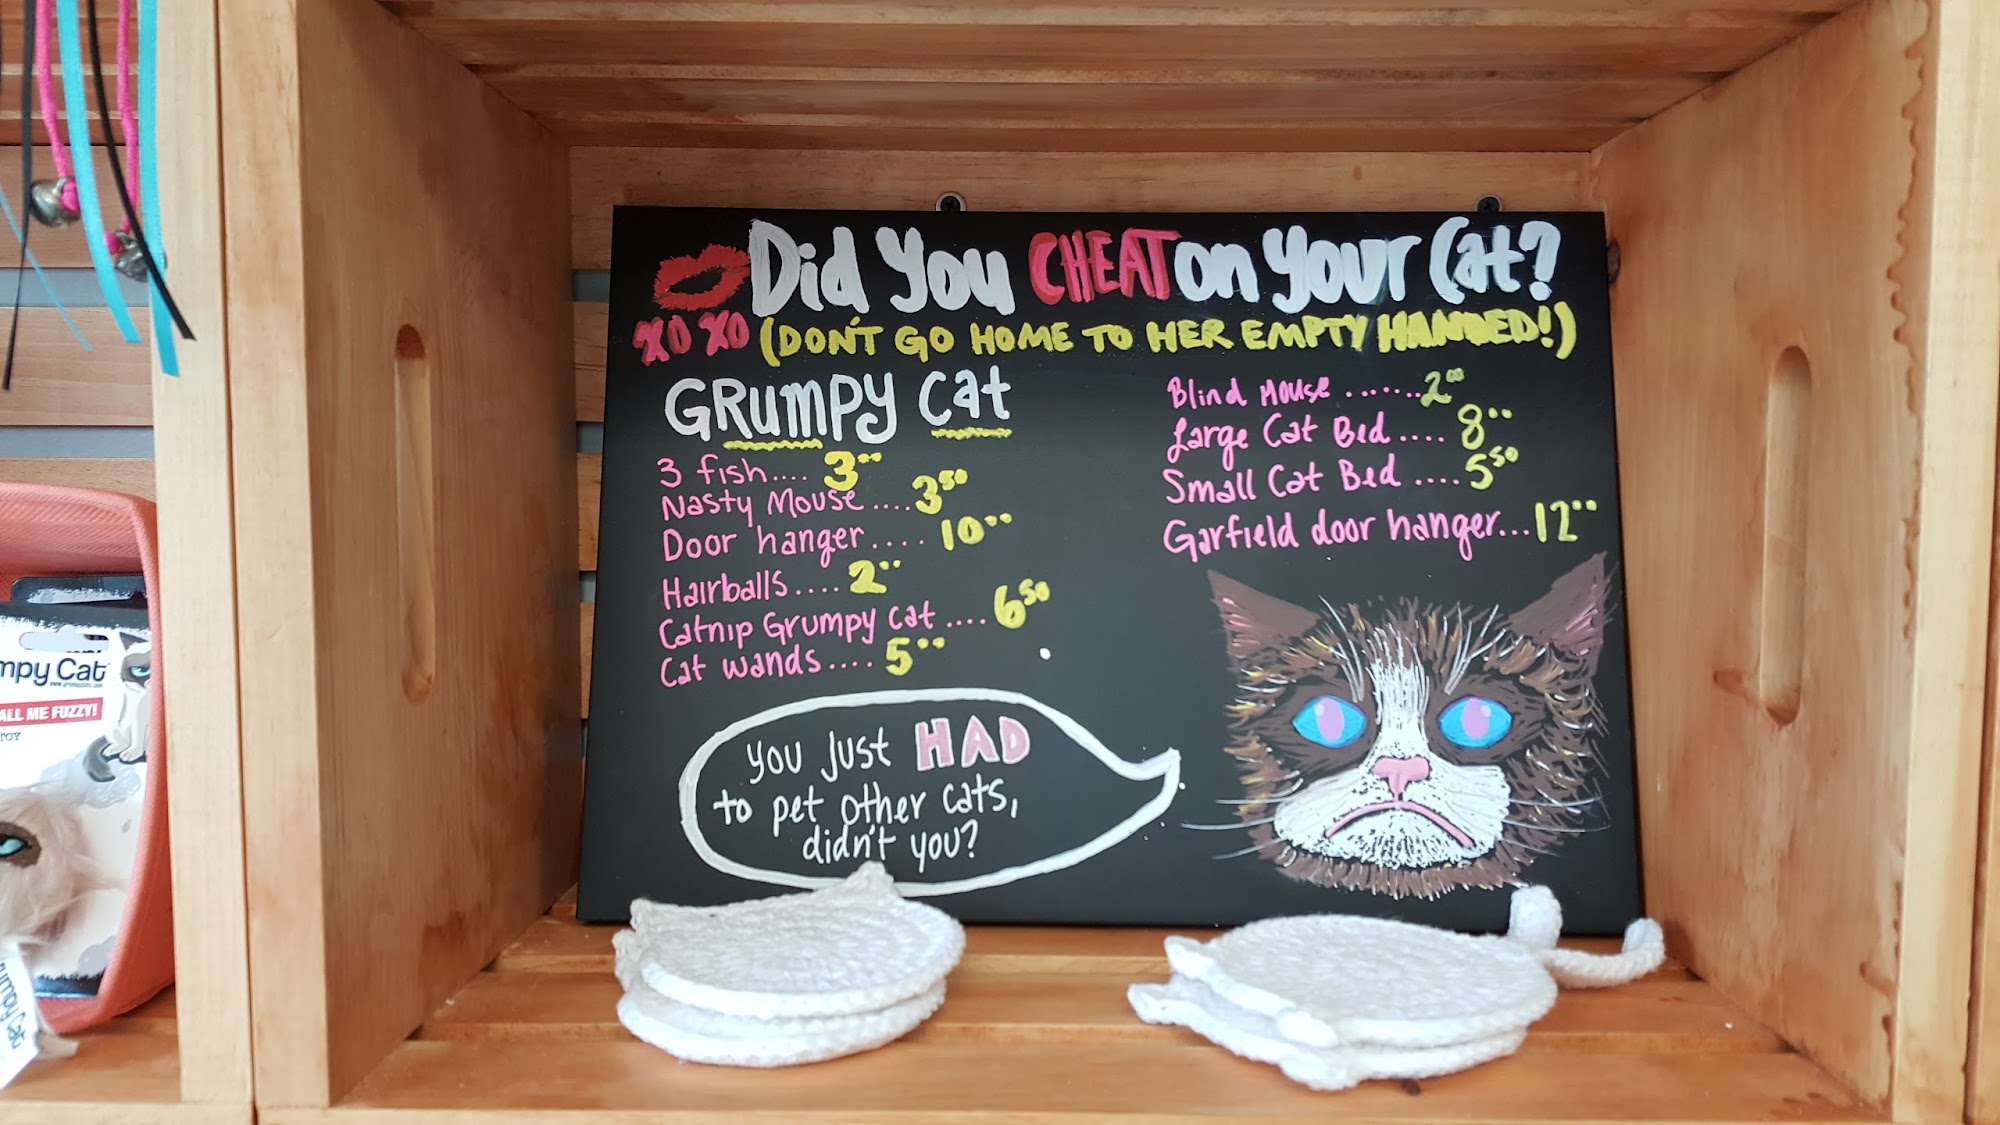 Did You CHEAT on Your Cat?
XO XO (DON'T GO HOME TO HER EMPTY HANDED!)
GRUMPY Cat
3 fish.... 3⁰⁰
Nasty Mouse....3⁵⁰
Door hanger.... 10⁰⁰
Hairballs.... 2⁰⁰
Catnip Grumpy Cat.... 6⁵⁰
Cat wands.... 5⁰⁰
Blind Mouse .......2⁰⁰
Large Cat Bed.... 8⁰⁰
Small Cat Bed ....5⁵⁰
Garfield door hanger...12⁰⁰
You Just HAD
to pet other cats,
didn't you?
mpy Cat
ALL ME FUZZY!
TOY